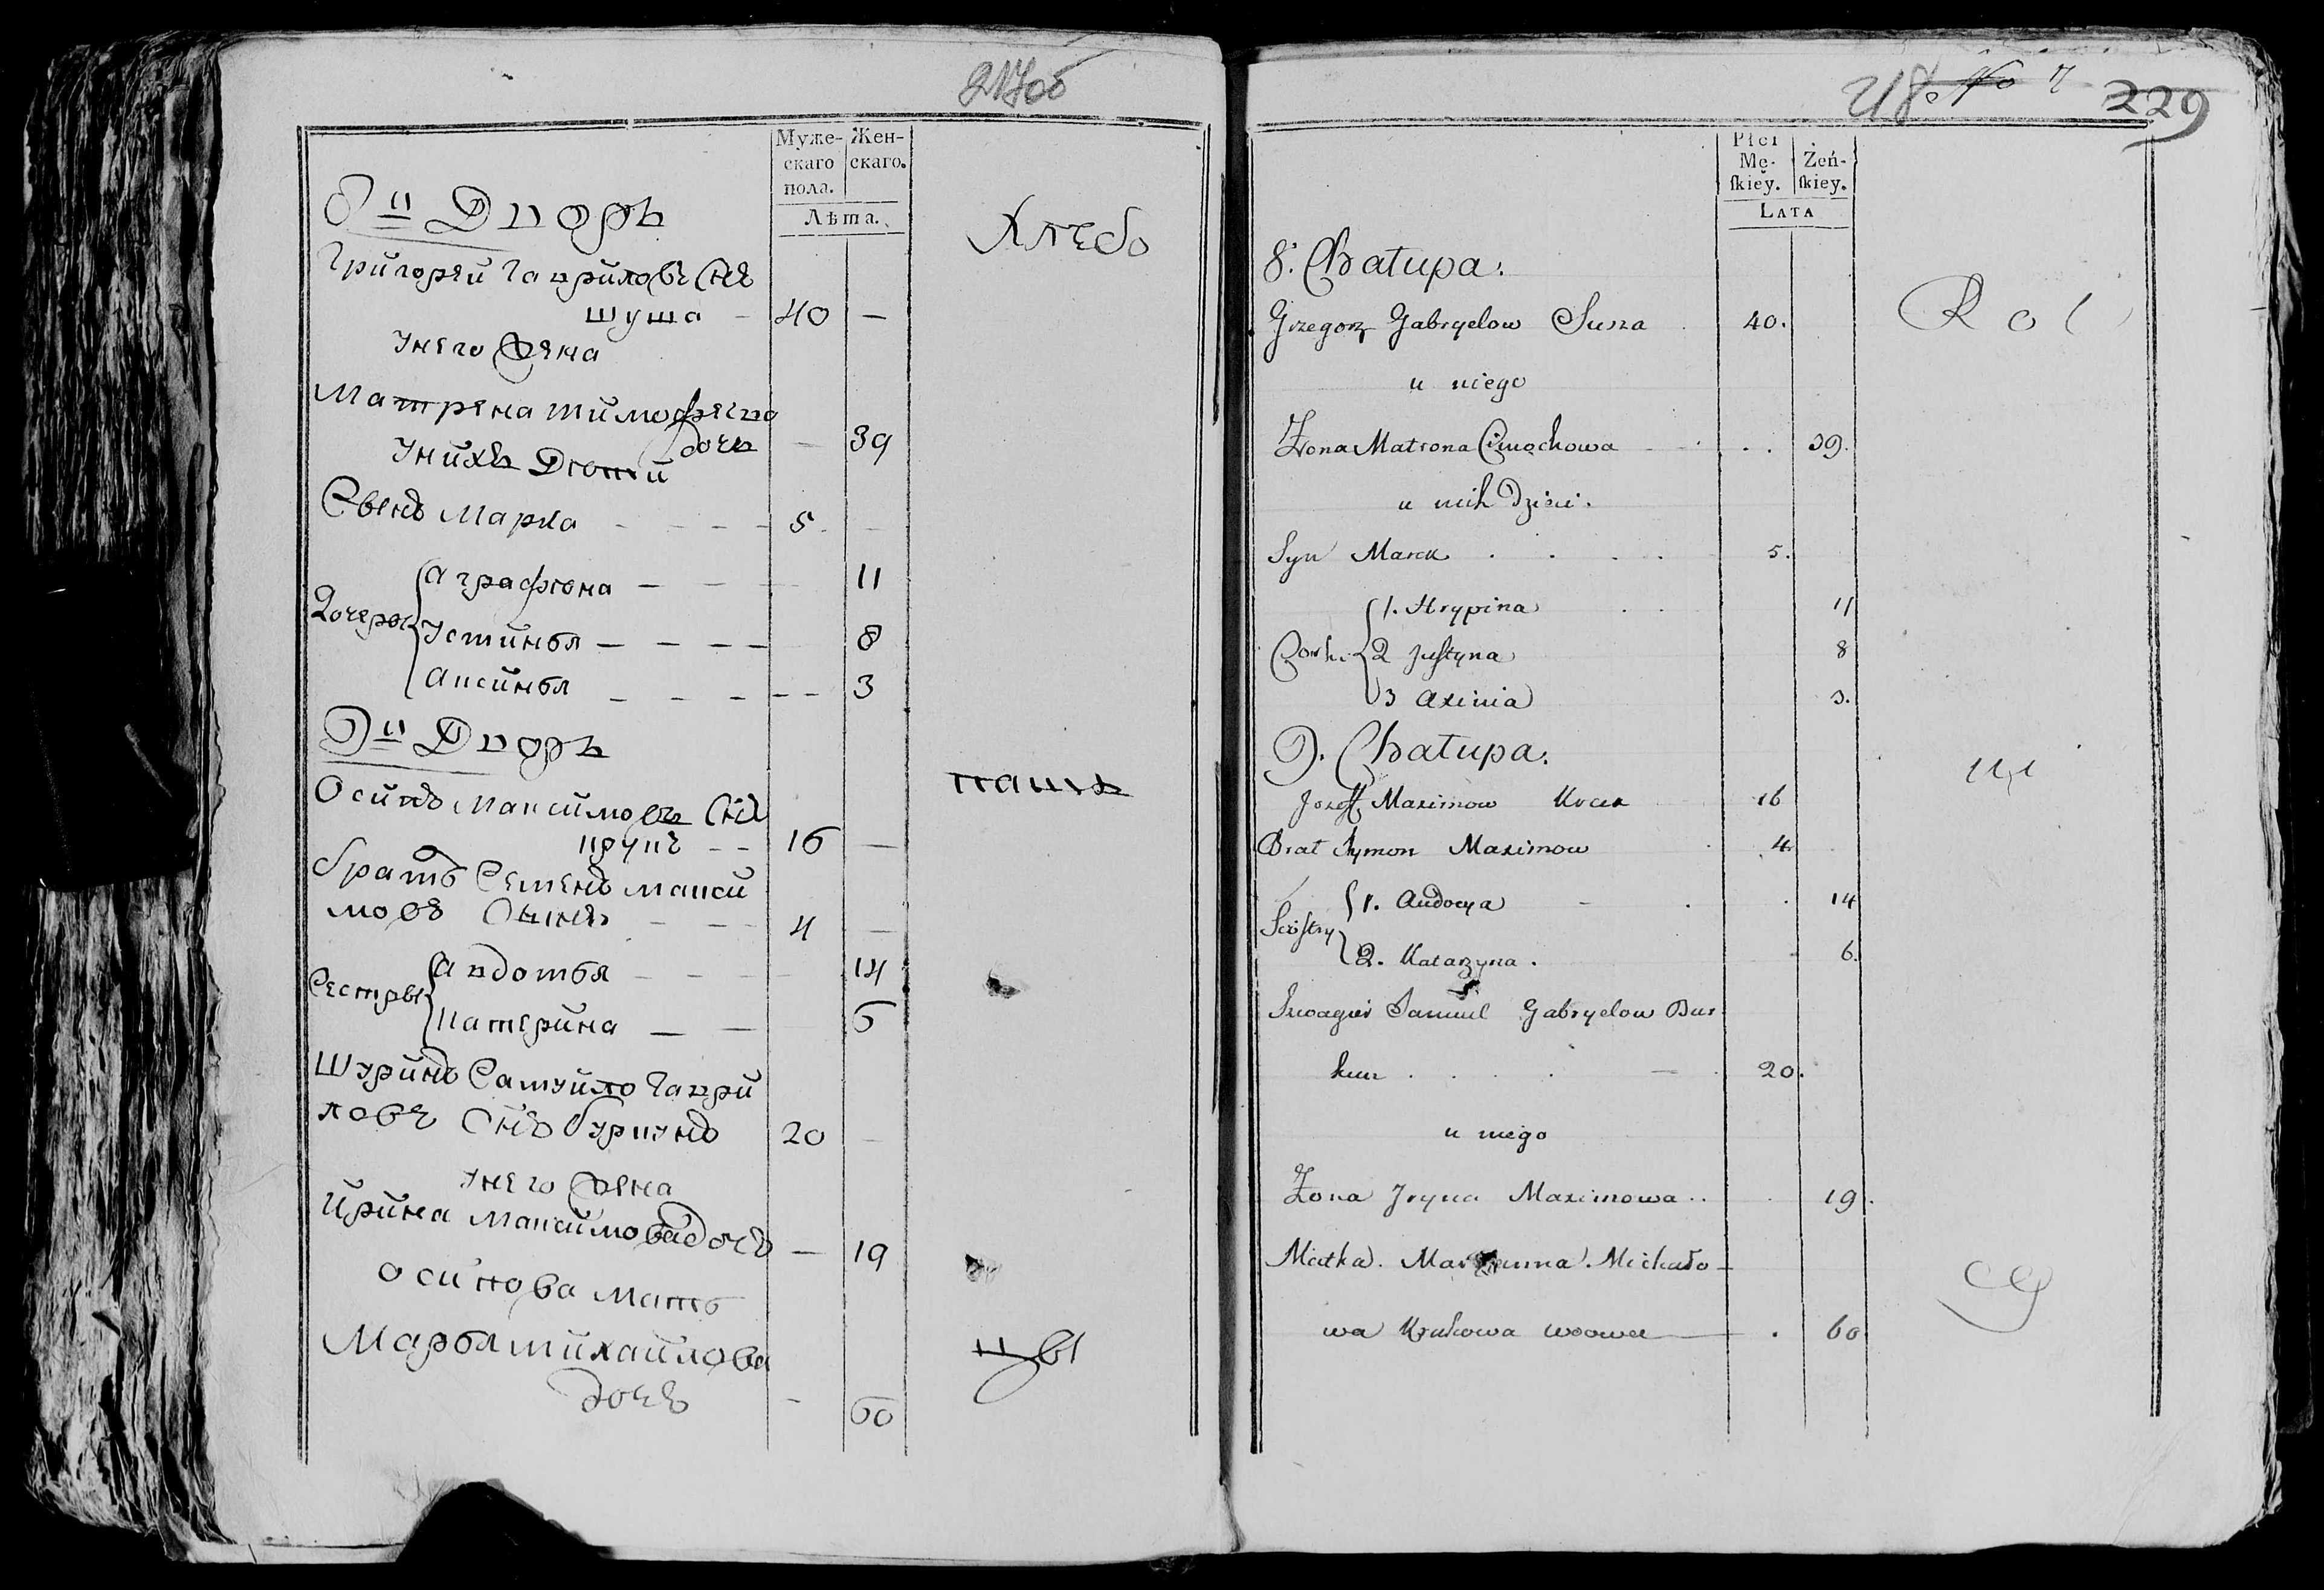 217об
Муже- Жен-
скаго скаго.
пола.
Лѣта.
8й Дворъ
Хлѣбо
Григорей Гавриловъ Снъ
Шуша - 40 —
У него Жена
Матрена Тимофеева
дочь — 39
У нихъ Дѣти
Сынъ Марко - - - - 5 —
Дочери
Аграфѣна — — — 11
Устинья — — — — 8
Аксинья — — — — — 3
9й Дворъ
Осипъ Максимовъ Снъ
пашъ
Крукъ - - 16 —
братъ Семенъ Макси
мовъ Сынъ — — - 4 —
Сестры
Авдотья — — — 14
Катерина — — 6
Шуринъ Самуйло Гаври
ловъ Снъ Буркунъ 20 —
У него Жена
Ирина Максимова дочь — 19
Осипова Мать
Марья Михайлова
цы
дочь - 60
218 No 7 229
Płci
Mę- Żeń-
ſkiey. ſkiey.
LATA
8. Chałupa.
Grzegorz Gabryelow Susza 40.
Rol
u niego
Żona Matrona Cimochowa . . 39.
u nich Dzieci.
Syn Marek . . . . 5.
Corki
1. Hrypina . . 11
2 Juſtyna 8
3 Axinia 3.
9. Chałupa.
ni
Jozeff Maximow Kruk 16
Brat Symon Maximow . 4.
Sioſtry
1. Audocya - . . 14
2. Katarzyna . 6.
Szwagier Samuel Gabryelow Bur
kun . . . — 20.
u niego
Żona Jryna Maximowa . . 19.
Matka. Maryanna Michało-
cy
wa Krukowa wdowa — . 60